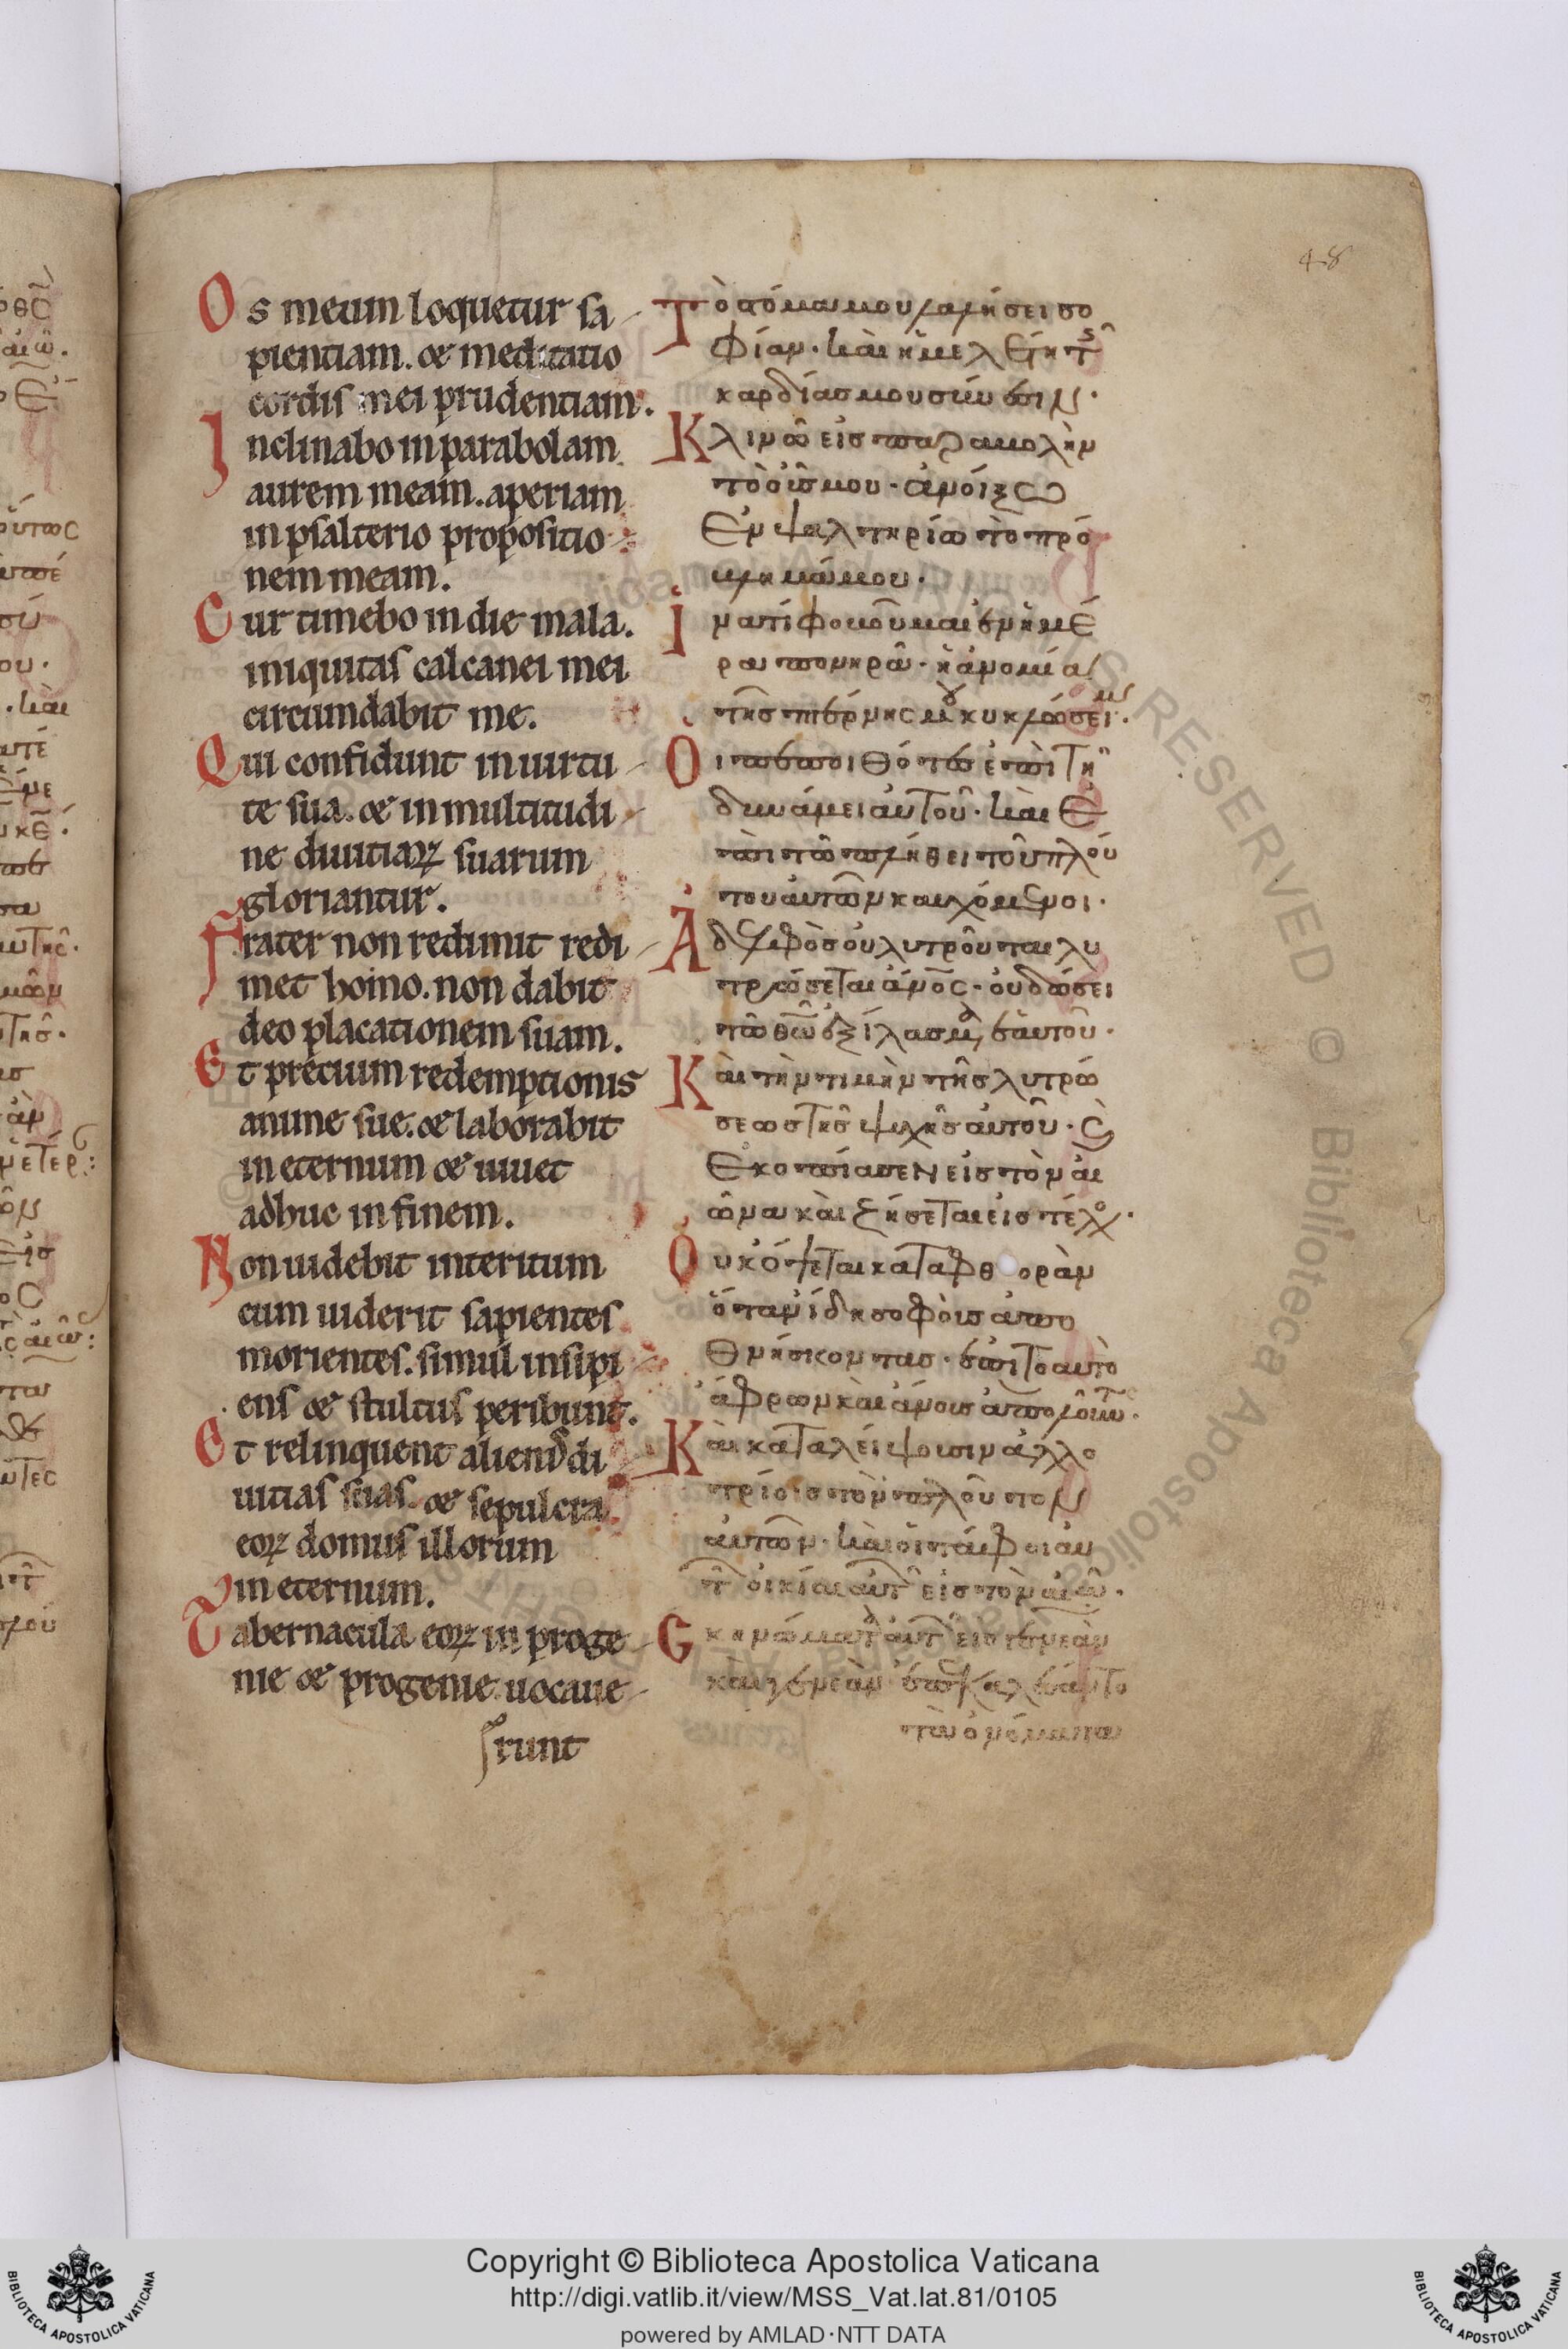 48
Os meum loquetur sa
pientiam. & meditatio
cordis mei prudentiam.
Inclinabo in parabolam
aurem meam. aperiam
in psalterio propositio
nem meam.
Cur timebo in die mala.
iniquitas calcanei mei
circumdabit me.
Qui confidunt in uirtu
te sua. & in multitudi
ne diuitiaꝝ suarum
gloriantur.
Frater non redimit redi
met homo. non dabit
deo placationem suam.
Et precium redemptionis
anime sue. & laborabit
in eternum & uiuet
adhuc in finem.
Non uidebit interitum
cum uiderit sapientes
morientes. simul insipi
ens & stultus peribunt.
Et relinquent alienis di
uitias suas. & sepulcra
eoꝝ domus illorum
in eternum.
Tabernacula eoꝝ in proge
nie & progenie. uocaue
runt
Τὸ στόμα μου λαλήσει σο
φίαν. καὶ ἡ μελέτη τῆς
καρδίας μου σύνεσιν.
Κλινῶ εἰς παραβολὴν
τὸ οὖς μου. ἀνοίξω
ἐν ψαλτηρίω τὸ πρό
βλημά μου.
Ἱνατί φοβοῦμαι ἐν ἡμέ
ρα πονηρᾶ. ἡ ἀνομία
τῆς πτέρνης μου κυκλώσει με.
Ὁι πεποιθότες ἐπὶ τῆ
δυνάμει αὐτοῦ. καὶ ἐ
πὶ τῶ πλήθει τοῦ πλού
του αὐτῶν καυχόμενοι.
Ἀδελφὸς οὐ λυτροῦται λυ
τρώσεται ἄνος. οὐ δώσει
τῶ θῶ ἐξίλασμα ἑαυτοῦ.
Καὶ τὴν τιμὴν τῆς λυτρώ
σεως τῆς ψυχῆς αὐτοῦ. καὶ
ἐκοπίασεν εἰς τὸν αἰ
ῶνα καὶ ζήσεται εἰς τέλος.
Οὐκ ὄψεται καταφθοράν
ὅταν ἴδη σοφοὺς ἀπο
θνήσκοντας. ἐπιτοαυτὸ
ἄφρων καὶ ἄνους ἀπολοῦνται.
Καὶ καταλείψουσιν ἀλλο
τρίοις τὸν πλοῦτον
αὐτῶν. καὶ οἱ τάφοι αὐ
τῶν οἰκίαι αὐτῶν εἰς τὸν αἰῶνα.
Σκηνώματα αὐτῶν εἰς γενεὰν
καὶ γενεὰν ἐπεκαλέσαντο
τὰ ὀνόματα
Copyright © Biblioteca Apostolica Vaticana
http://digi.vatlib.it/view/MSS_Vat.lat.81/0105
powered by AMLAD·NTT DATA